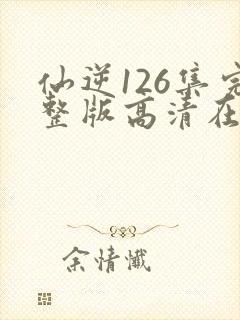 仙逆126集完
整版高清在
余情懺